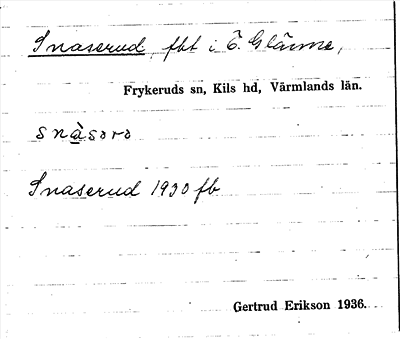 Snaserud, fbt i Ö. Glänne,
Frykeruds sn, Kils hd, Värmlands län.
snàsərə
Snaserud 1930 fb
Gertrud Erikson 1936.